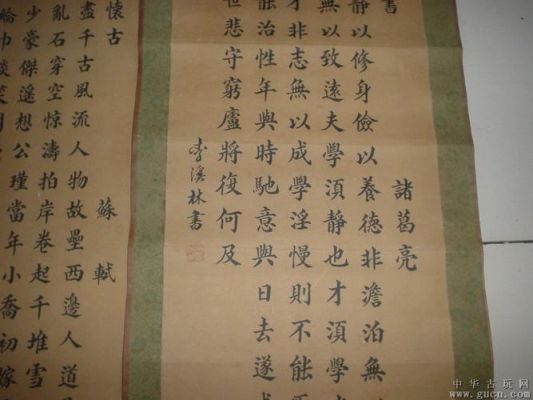 書
諸葛亮
靜以修身儉以養德非澹泊無
無以致遠夫學須靜也才須學
才非志無以成學淫慢則不能
能治性年與時馳意與日去遂
世悲守窮廬將復何及
李溪林書
懷古
蘇軾
盡千古風流人物故壘西邊人道
亂石穿空惊濤拍岸卷起千堆雪
少豪傑遙想公瑾當年小喬初嫁
綸巾談笑
中华古玩网
www.gucn.com